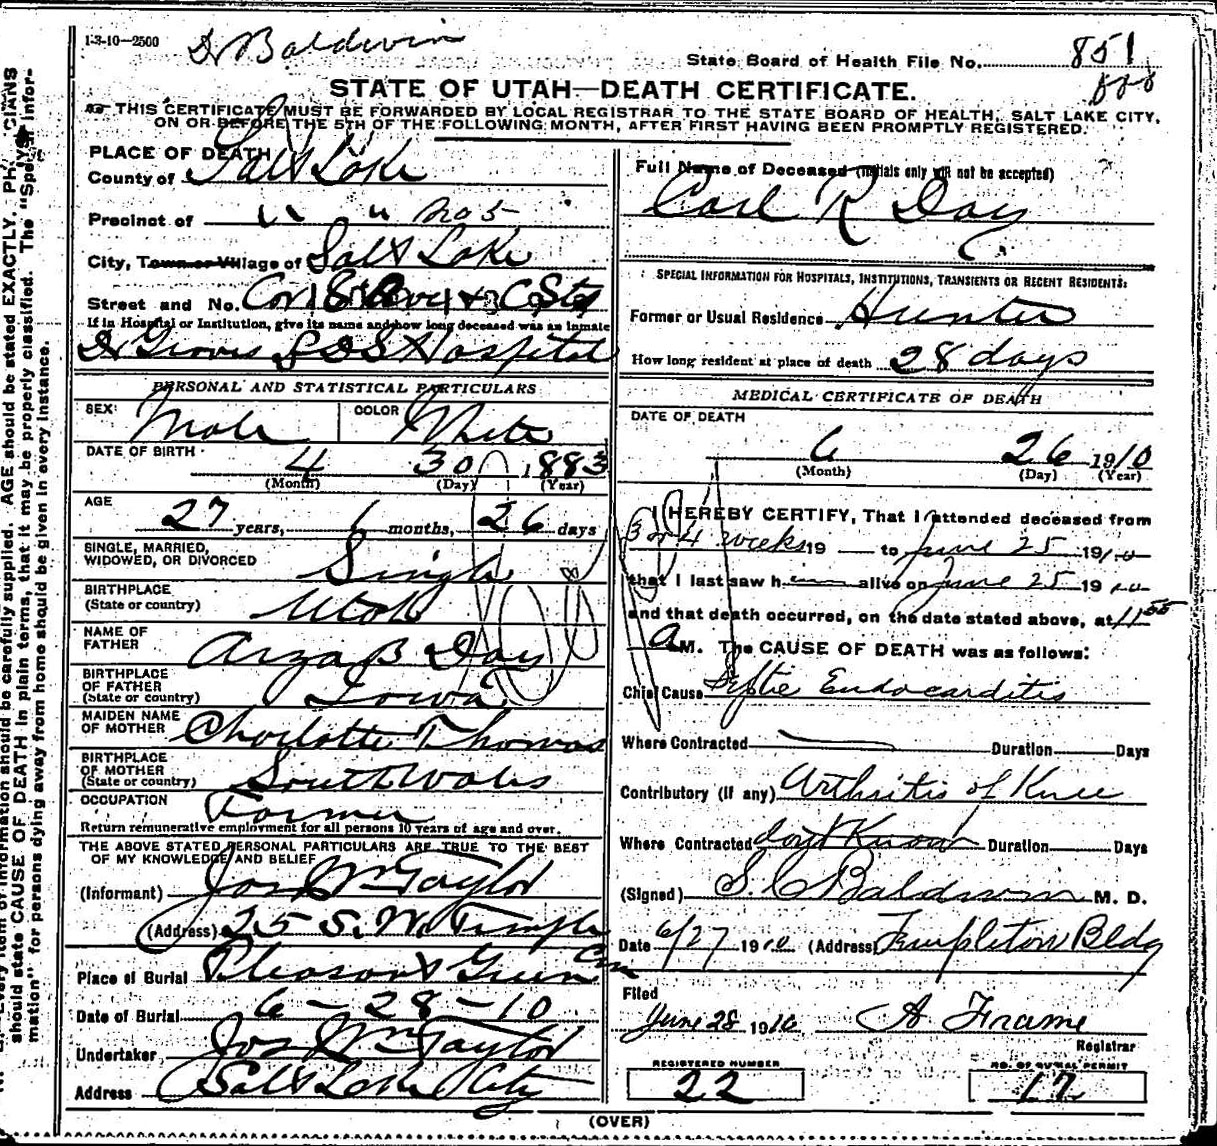 1-3-10—2500
Dr Baldwin
State Board of Health File No. 851
STATE OF UTAH—DEATH CERTIFICATE.
THIS CERTIFICATE MUST BE FORWARDED BY LOCAL REGISTRAR TO THE STATE BOARD OF HEALTH, SALT LAKE CITY,
ON OR BEFORE THE 5TH OF THE FOLLOWING MONTH, AFTER FIRST HAVING BEEN PROMPTLY REGISTERED.
PLACE OF DEATH
County of Salt Lake
Precinct of " " No 5
City, Town or Village of Salt Lake
Street and No. Cor 8 Ave & C Sts
If in Hospital or Institution, give its name and how long deceased was an inmate
Dr Groves L D S Hospital
PERSONAL AND STATISTICAL PARTICULARS
SEX: Male COLOR White
DATE OF BIRTH 4 30 1883
(Month) (Day) (Year)
AGE 27 years, 1 months, 26 days
SINGLE, MARRIED, WIDOWED, OR DIVORCED Single
BIRTHPLACE (State or country) Utah
NAME OF FATHER Arza B Day
BIRTHPLACE OF FATHER (State or country) Iowa
MAIDEN NAME OF MOTHER Charlotte Thomas
BIRTHPLACE OF MOTHER (State or country) South Wales
OCCUPATION Farmer
Return remunerative employment for all persons 10 years of age and over.
THE ABOVE STATED PERSONAL PARTICULARS ARE TRUE TO THE BEST
OF MY KNOWLEDGE AND BELIEF
(Informant) Jos Wm Taylor
(Address) 25 S. W. Temple
Place of Burial Pleasant Green Cem
Date of Burial 6-28-10
Undertaker Jos Wm Taylor
Address Salt Lake City
Full Name of Deceased (Initials only will not be accepted)
Carl R Day
SPECIAL INFORMATION FOR HOSPITALS, INSTITUTIONS, TRANSIENTS OR RECENT RESIDENTS:
Former or Usual Residence Hunter
How long resident at place of death 28 days
MEDICAL CERTIFICATE OF DEATH
DATE OF DEATH
6 26 1910
(Month) (Day) (Year)
I HEREBY CERTIFY, That I attended deceased from
3 or 4 weeks 19 to June 25 1910
that I last saw h alive on June 25 1910
and that death occurred, on the date stated above, at 11 55
A M. The CAUSE OF DEATH was as follows:
Chief Cause Septic Endocarditis
Where Contracted Duration Days
Contributory (if any) Arthritis of Knee
Where Contracted dont Know Duration Days
(Signed) S. C Baldwin M. D.
Date 6/27 1910 (Address) Templeton Bldg
Filed
June 28 1910 A Frame
Registrar
REGISTERED NUMBER 22
NO. OF BURIAL PERMIT 17
(OVER)
should be carefully supplied. AGE should be stated EXACTLY.
should state CAUSE OF DEATH in plain terms, that it may be properly classified. The "Special Infor-
mation" for persons dying away from home should be given in every instance.